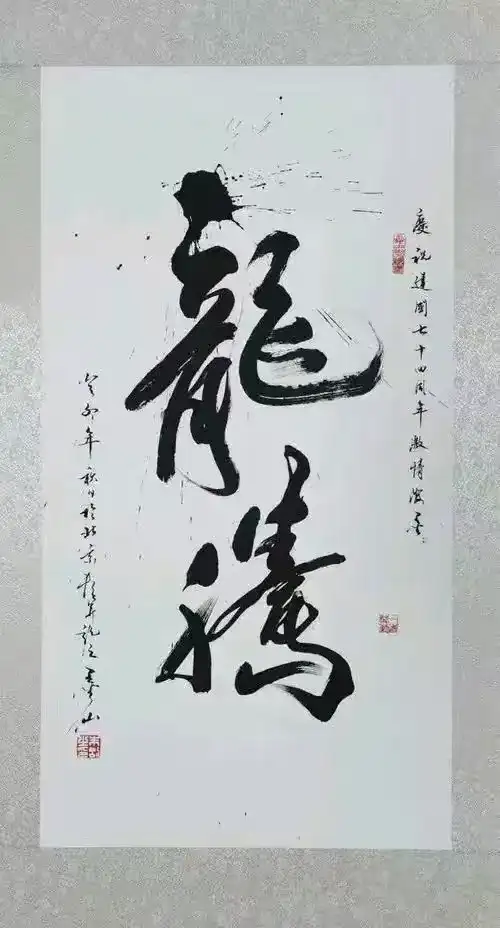 慶祝建國七十四周年激情潑墨
龍騰
癸卯年秋於北京 年龍江墨山